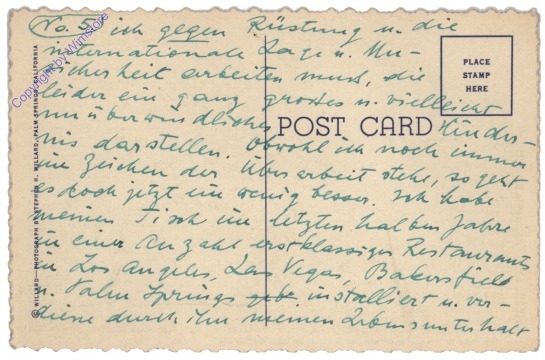 No. 5) ich gegen Rüstung u. die
internationale Lage u. Un-
sicherheit arbeiten muss, die
leider ein ganz grosses u. vielleicht
unüberwindliches Hinder-
nis darstellen. Obwohl ich noch immer
im Zeichen der Überarbeit stehe, so geht
es doch jetzt ein wenig besser. Ich habe
meinen Tisch im letzten halben Jahre
in einer Anzahl erstklassiger Restaurants
in Los Angeles, Las Vegas, Bakersfield
u. Palm Springs installiert u. ver-
diene durch ihn meinen Lebensunterhalt
POST CARD
PLACE
STAMP
HERE
© WILLARD—PHOTOGRAPH BY STEPHEN H. WILLARD, PALM SPRINGS, CALIFORNIA
Copyright by Winstore